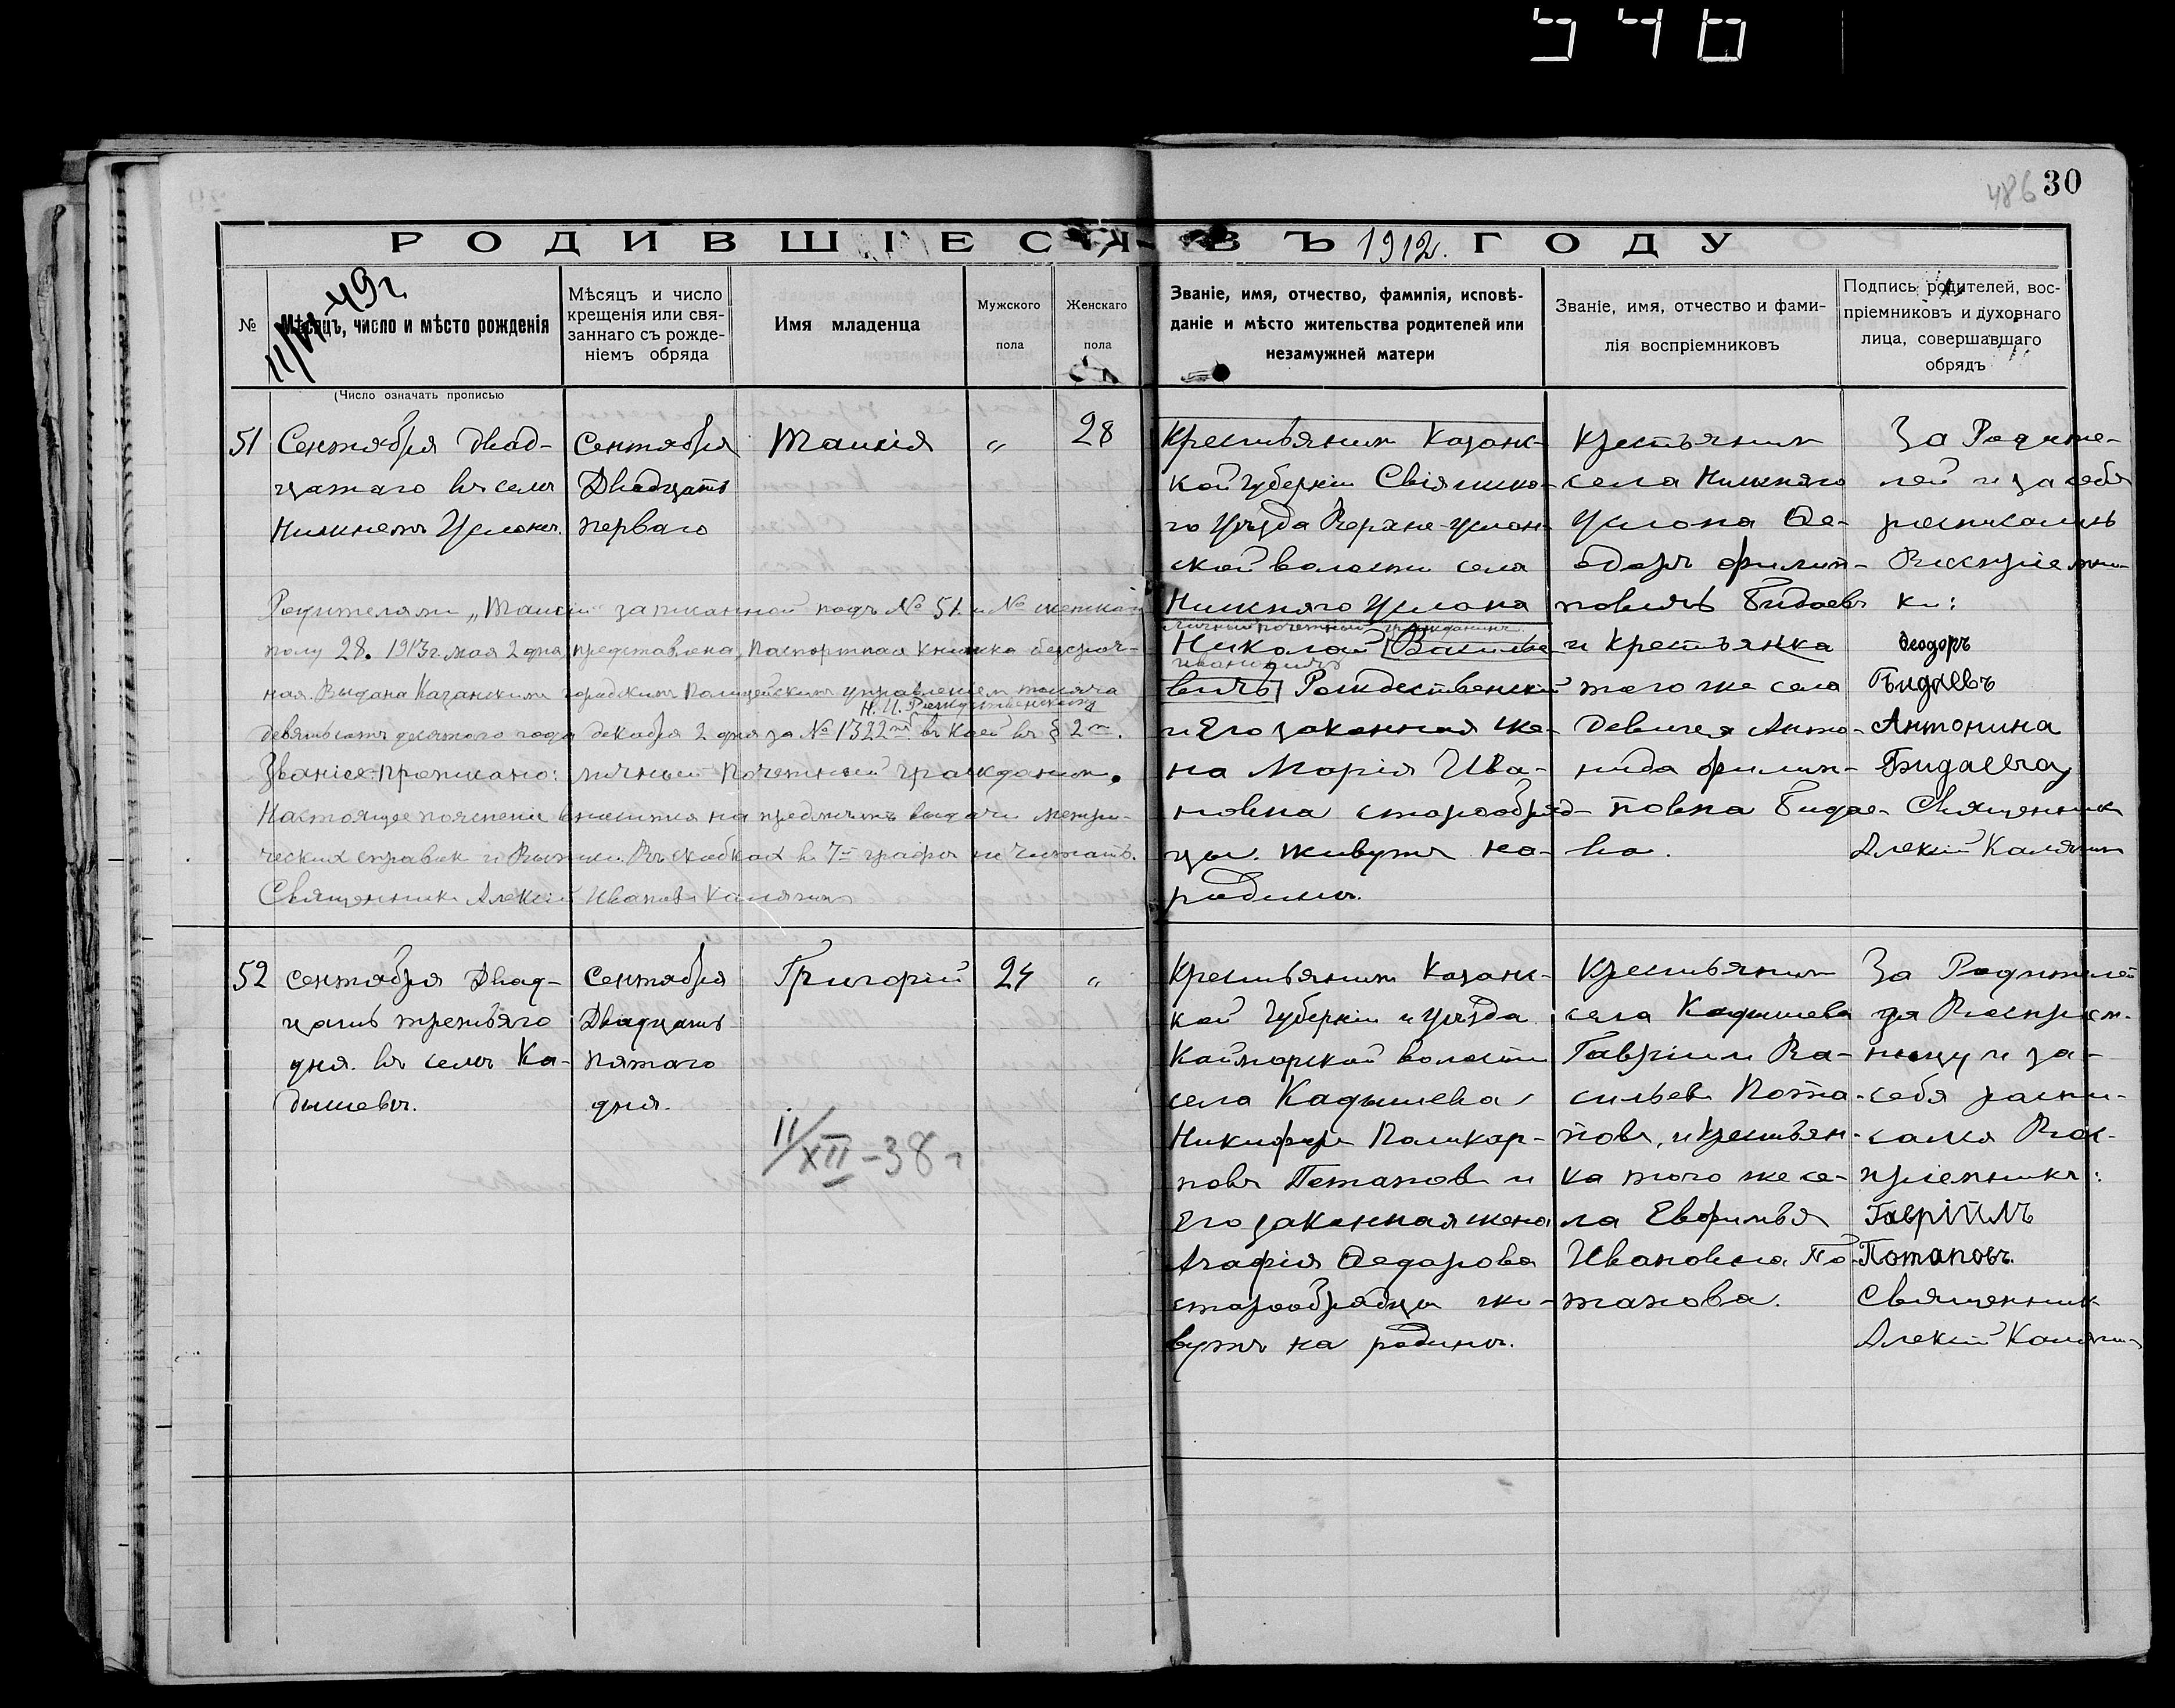 546
486 30
РОДИВШІЕСЯ ВЪ 1912. ГОДУ
№
11/VII-49г.
Мѣсяцъ, число и мѣсто рожденія
(Число означать прописью
Мѣсяцъ и число
крещенія или свя-
заннаго съ рожде-
ніемъ обряда
Имя младенца
Мужского
пола
Женскаго
пола
Званіе, имя, отчество, фамилія, исповѣ-
даніе и мѣсто жительства родителей или
незамужней матери
Званіе, имя, отчество и фами-
лія воспріемниковъ
Подпись родителей, вос-
пріемниковъ и духовнаго
лица, совершавшаго
обрядъ
51
Сентября двад-
цатаго въ селѣ
Нижнемъ Услонѣ.
Сентября
Двадцать
перваго
Таисія
„
28
Крестьянинъ Казанс-
кой губерніи Свіяжско-
го Уѣзда Верхне-Услон-
ской волости села
Нижняго Услона
личный почетный гражданинъ
Николай [Василье-
Ивановичъ
вичъ] Рождественскій
и Его законная же-
на Марія Ива-
новна старообряд-
цы. живутъ на-
родинѣ.
Крестьянин
села Нижняго
Услона Ѳе-
одоръ Филип-
повичъ Бидаевъ
и крестьянка
того же села
Девица Анто-
нида Филип-
повна Бидае-
ва.
За Родите-
лей и за себя
росписались
Воспріемни-
ки:
Ѳеодоръ
Бидаевъ
Антонина
Бидаева
Священникъ
Алексій Калягинъ
Родителями „Таисіи" записанной подъ № 51 и № женскаго
полу 28. 1913 г. мая 2 дня, представлена, Паспортная Книжка безсроч-
ная. Выдана Казанскимъ городскимъ Полицейскимъ управленіем тысяча
Н. И. Рождественскому
девятьсотъ десятого года декабря 2 дня за № 1322мъ въ коей въ § 2м.
Званіе прописано: личный Почетный гражданинъ.
Настоящее пояснение вносится на предметъ выдачи метри-
ческих справок и Выписи. Въ скобках в 7й графѣ не читать.
Священникъ Алексій Иванов Калягинъ
52
Сентября Двад-
цать третьяго
дня. въ селѣ Ка-
дышевѣ.
Сентября
Двадцать
пятаго
дня.
Григорій
24
„
11/XII-38г
Крестьянинъ Казанс-
кой Губерніи и уѣзда
Каймарской волости
села Кадышева
Никифоръ Поликар-
повъ Потапов и
Его законная жена
Агафія Ѳедорова
старообрядцы жи-
вутъ на родинѣ.
Крестьянинъ
села Кадышева
Гавріилъ Ва-
сильев Пота-
повъ, и крестьян-
ка того же се-
ла Евфимья
Ивановна По-
тапова.
За Родителей
за Воспріем-
ницу и за-
себя распи-
сался Вос-
пріемникъ:
Гавріилъ
Потаповъ.
Священникъ
Алексій Калягинъ